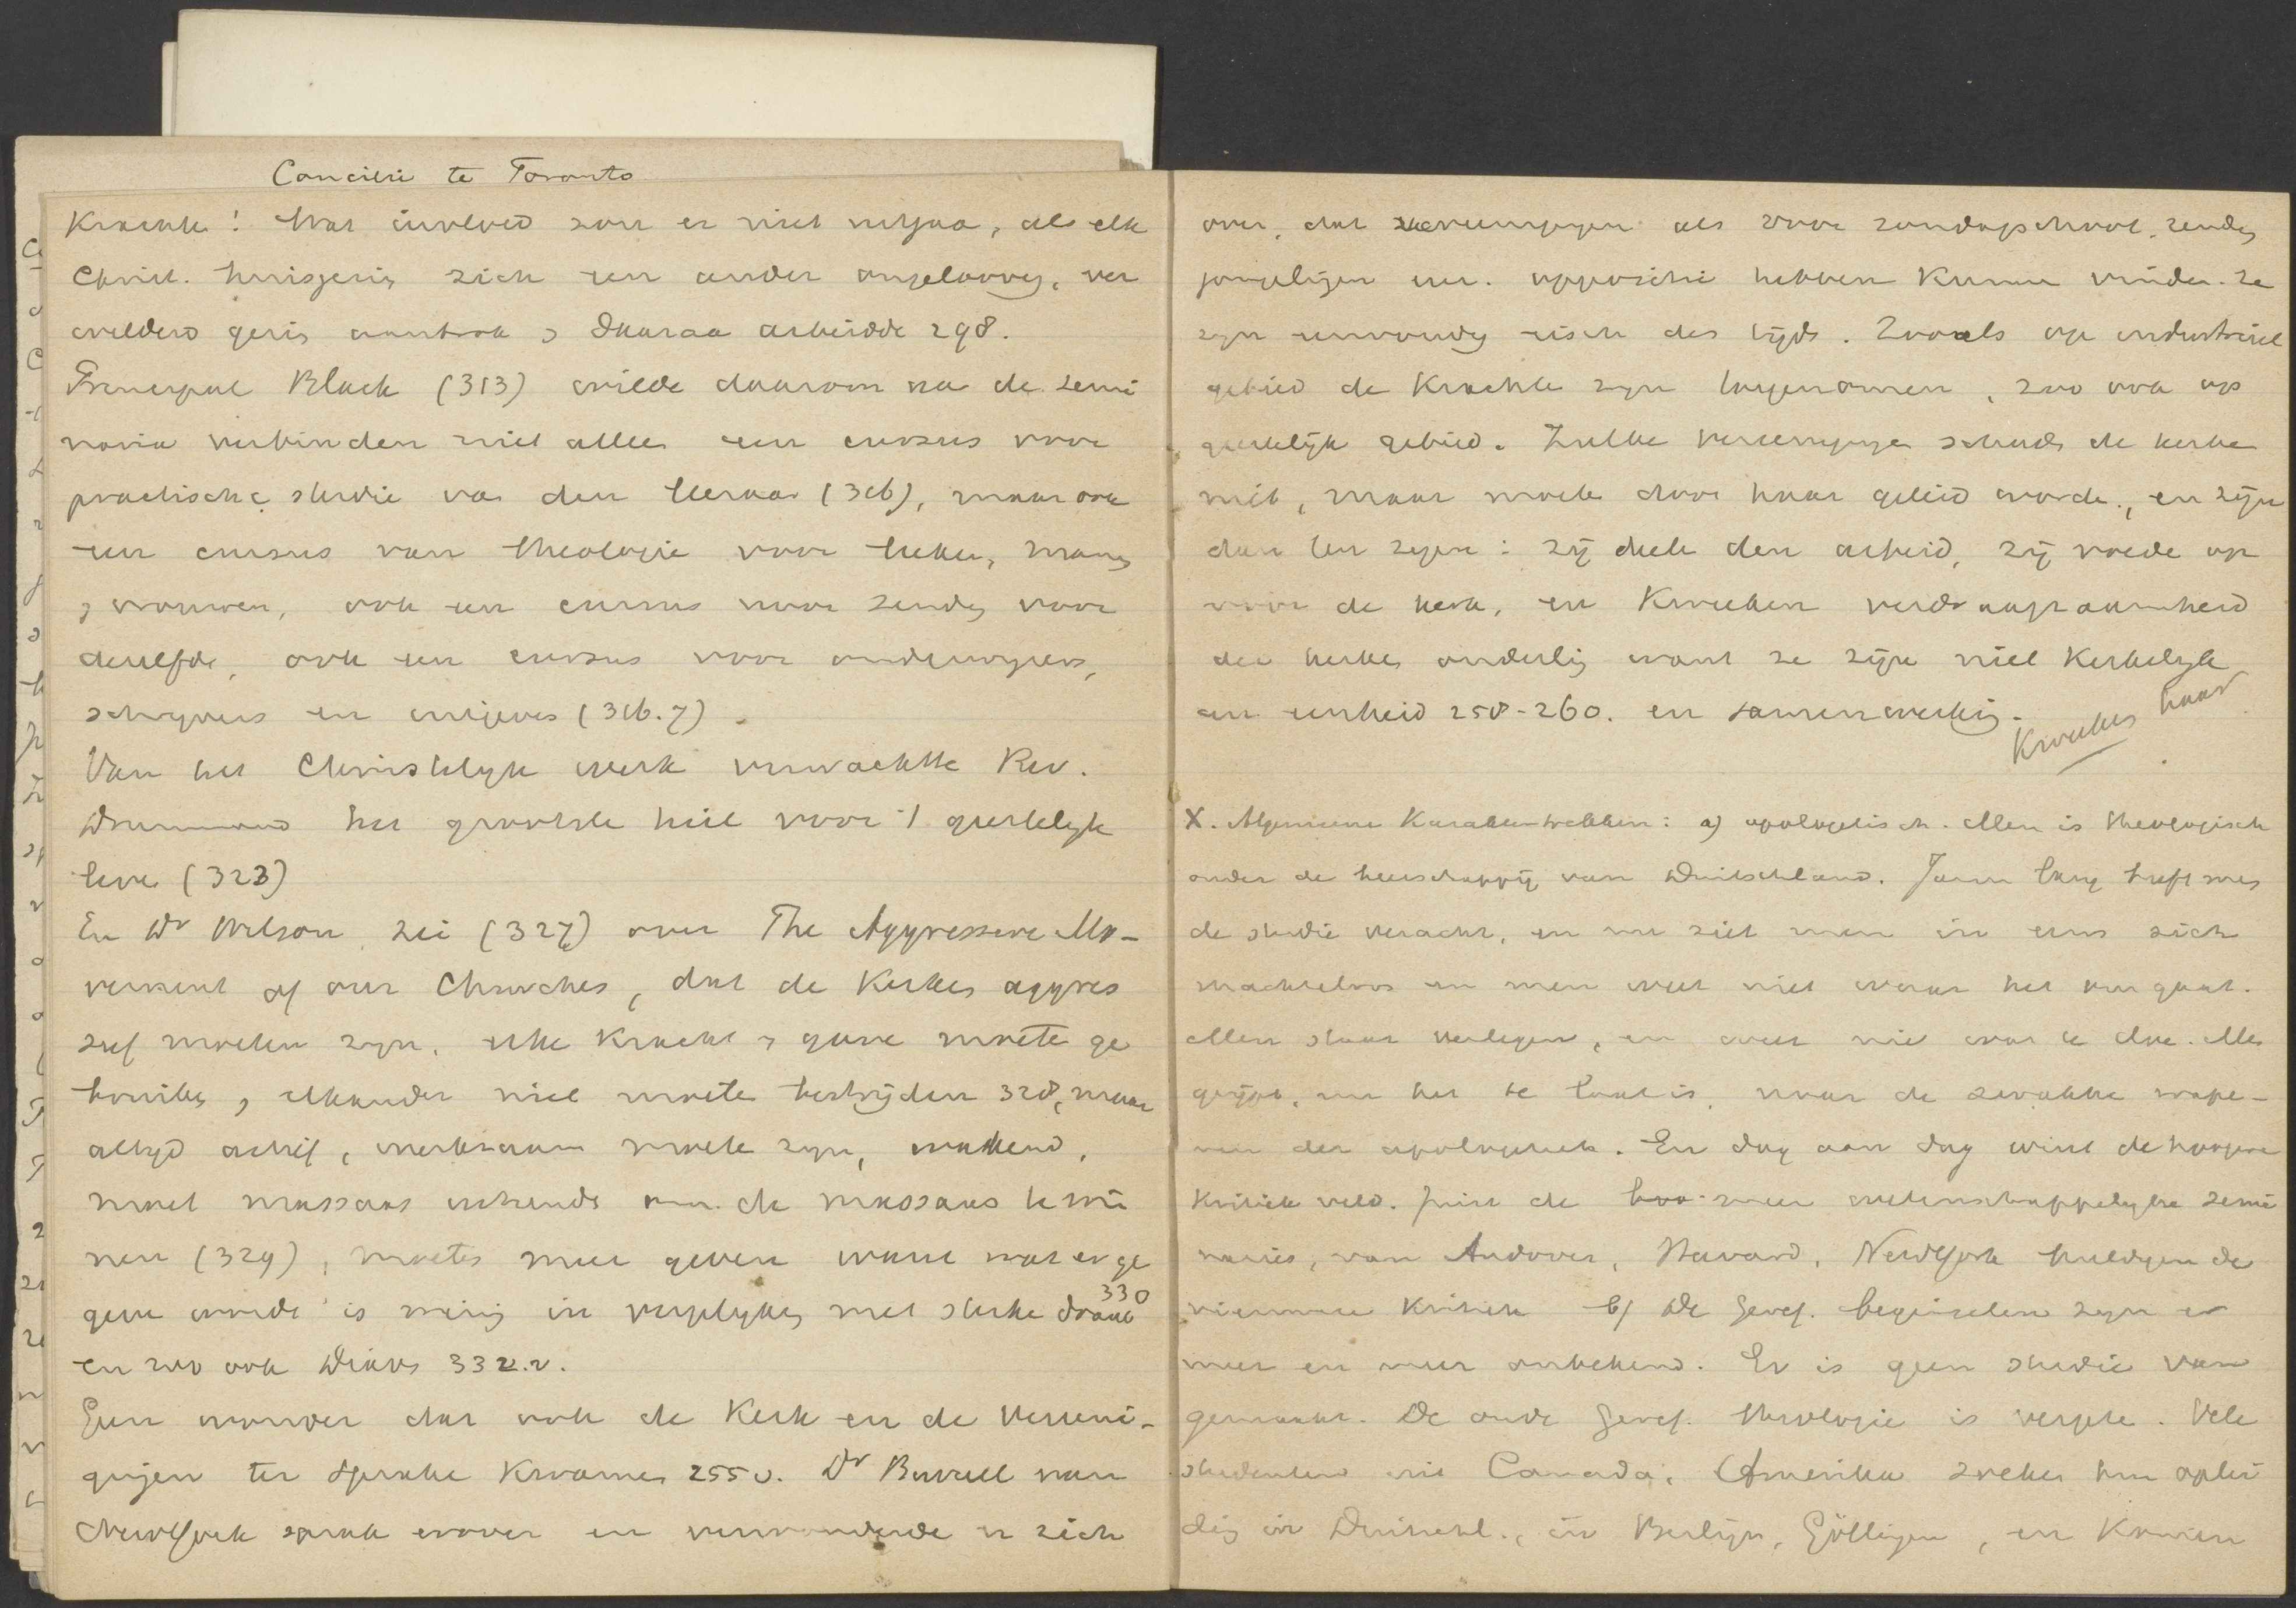 Concilie te Toronto
Kracht! Wat invloed zou er niet uitgaa, als elk
Christ. huisgezin zich een ander ongeloovig, ver
wilderd gezin aantrok, daaraa arbeidde 298.
Principal Black (313) wilde daarom na de semi
naria verbinden niet alleen een cursus voor
practische studie van den leeraar (316), maar ook
een cursus van theologie voor leeken, mann
, vrouwen, ook een cursus voor zendg voor
dezelfde, ook een cursus voor onderwijzers,
schrijvers en uitgevers (316.7).
Van het Christelijk werk verwachtte Rev.
Drummond het grootste heil voor 't geestelijk
leve (323)
En Dr Wilson zei (327) over The Aggressive Mo-
vement of our Churches, dat de Kerken aggres
sief moeten zijn, elke kracht , gave moete ge
bruiken, elkander niet moete bestrijden 328, maar
altijd actief, werkzaam moete zijn, wakend,
moet massaas uitzende om de massaas te win
nen (329), moeten meer geven want wat er ge
geve wordt is weinig in vergelijking met sterke drank 330
en zoo ook Dikes 332.v.
Geen wonder dat ook de Kerk en de Vereeni-
gingen ter sprake kwamen 255v. Dr Burrell van
NewYork sprak erover en verwonderde er zich
over, dat vereenigingen als voor zondagschool, zendg
jongelingen enz. oppositie hebben kunne vinden. Ze
zijn eenvoudig eisch des tijds. Zooals op industrieel
gebied de krachte zijn toegenomen, zoo ook op
geestelijk gebied. Zulke vereenigingen schade de kerke
niet, maar moete door haar geleid worde, en zijn
dan ten zegen: zij deele den arbeid, zij voede op
voor de kerk, en kweeken verdraagzaamheid
der kerken onderling want ze zijn niet Kerkelijk
aan eenheid 258-260. en samenwerking.
Kweeken haar
X. Algemeene Karaktertrekken: a) apologetisch. Men is theologisch
onder de heerschappij van Duitschland. Jaren lang heeft men
de studie veracht, en nu ziet men in eens zich
machteloos en men weet niet waar het om gaat.
Men staat verlegen, en weet niet wat te doe. Men
grijpt, nu het te laat is, naar de zwakke wape-
nen der apologetiek. En dag aan dag wint de hoogere
kritiek veld. Juist de meer wetenschappelijke semi
naries, van Andover, Harvard, NewYork huldigen de
nieuwere kritiek b) De Geref. beginselen zijn er
meer en meer onbekend. Er is geen studie van
gemaakt. De oude Geref. theologie is vergete. Vele
studenten uit Canada, Amerika zoeken hun oplei
ding in Duitschl., in Berlijn, Göttingen, en komen